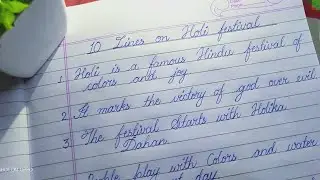 10 Lines on Holi festival
1. Holi is a famous Hindu festival of
colors and joy
2. It marks the victory of god over evil
3. The festival Starts with Holika
Dahan.
play with Colors and water
day